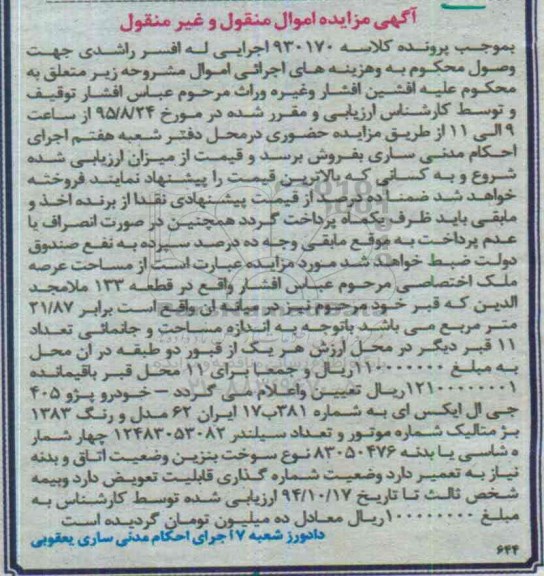 آگهی مزایده اموال منقول و غیر منقول
بموجب پرونده کلاسه ۹۳۰۱۷۰ اجرایی له افسر راشدی جهت
وصول محکوم به وهزینه های اجرائی اموال مشروحه زیر متعلق به
محکوم علیه افشین افشار وغیره وراث مرحوم عباس افشار توقیف
و توسط کارشناس ارزیابی و مقرر شده در مورخ ۹۵/۸/۲۴ از ساعت
۹ الی ۱۱ از طریق مزایده حضوری درمحل دفتر شعبه هفتم اجرای
احکام مدنی ساری بفروش برسد و قیمت از میزان ارزیابی شده
شروع و به کسانی که بالاترین قیمت را پیشنهاد نمایند فروخته
خواهد شد ضمنا ده درصد از قیمت پیشنهادی نقدا از برنده اخذ و
مابقی باید ظرف یکماه پرداخت گردد همچنین در صورت انصراف یا
عدم پرداخت به موقع مابقی وجه ده درصد سپرده به نفع صندوق
دولت ضبط خواهد شد مورد مزایده عبارت است از مساحت عرصه
ملک اختصاصی مرحوم عباس افشار واقع در قطعه ۱۳۳ ملامجد
الدین که قبر خود مرحوم نیز در میانه ان واقع است برابر ۲۱/۸۷
متر مربع می باشد باتوجه به اندازه مساحت و جانمائی تعداد
۱۱ قبر دیگر در محل ارزش هر یک از قبور دو طبقه در ان محل
به مبلغ ۱۱۰۰۰۰۰۰۰ ریال و جمعا برای ۱۱ محل قبر باقیمانده
ریال تعیین واعلام می گردد – خودرو پژو ۴۰۵
جی ال ایکس ای به شماره ۳۸۱ب۱۷ ایران ۶۲ مدل و رنگ ۱۳۸۳
بژ متالیک شماره موتور و تعداد سیلندر ۱۲۴۸۳۰۵۳۰۸۲ چهار شمار
ه شاسی یا بدنه ۸۳۰۵۰۴۷۶ نوع سوخت بنزین وضعیت اتاق و بدنه
نیاز به تعمیر دارد وضعیت شماره گذاری قابلیت تعویض دارد وبیمه
شخص ثالث تا تاریخ ۹۴/۱۰/۱۷ ارزیابی شده توسط کارشناس به
مبلغ ۱۰۰۰۰۰۰۰۰ ریال معادل ده میلیون تومان گردیده است
دادورز شعبه ۷ اجرای احکام مدنی ساری یعقوبی
۶۴۴